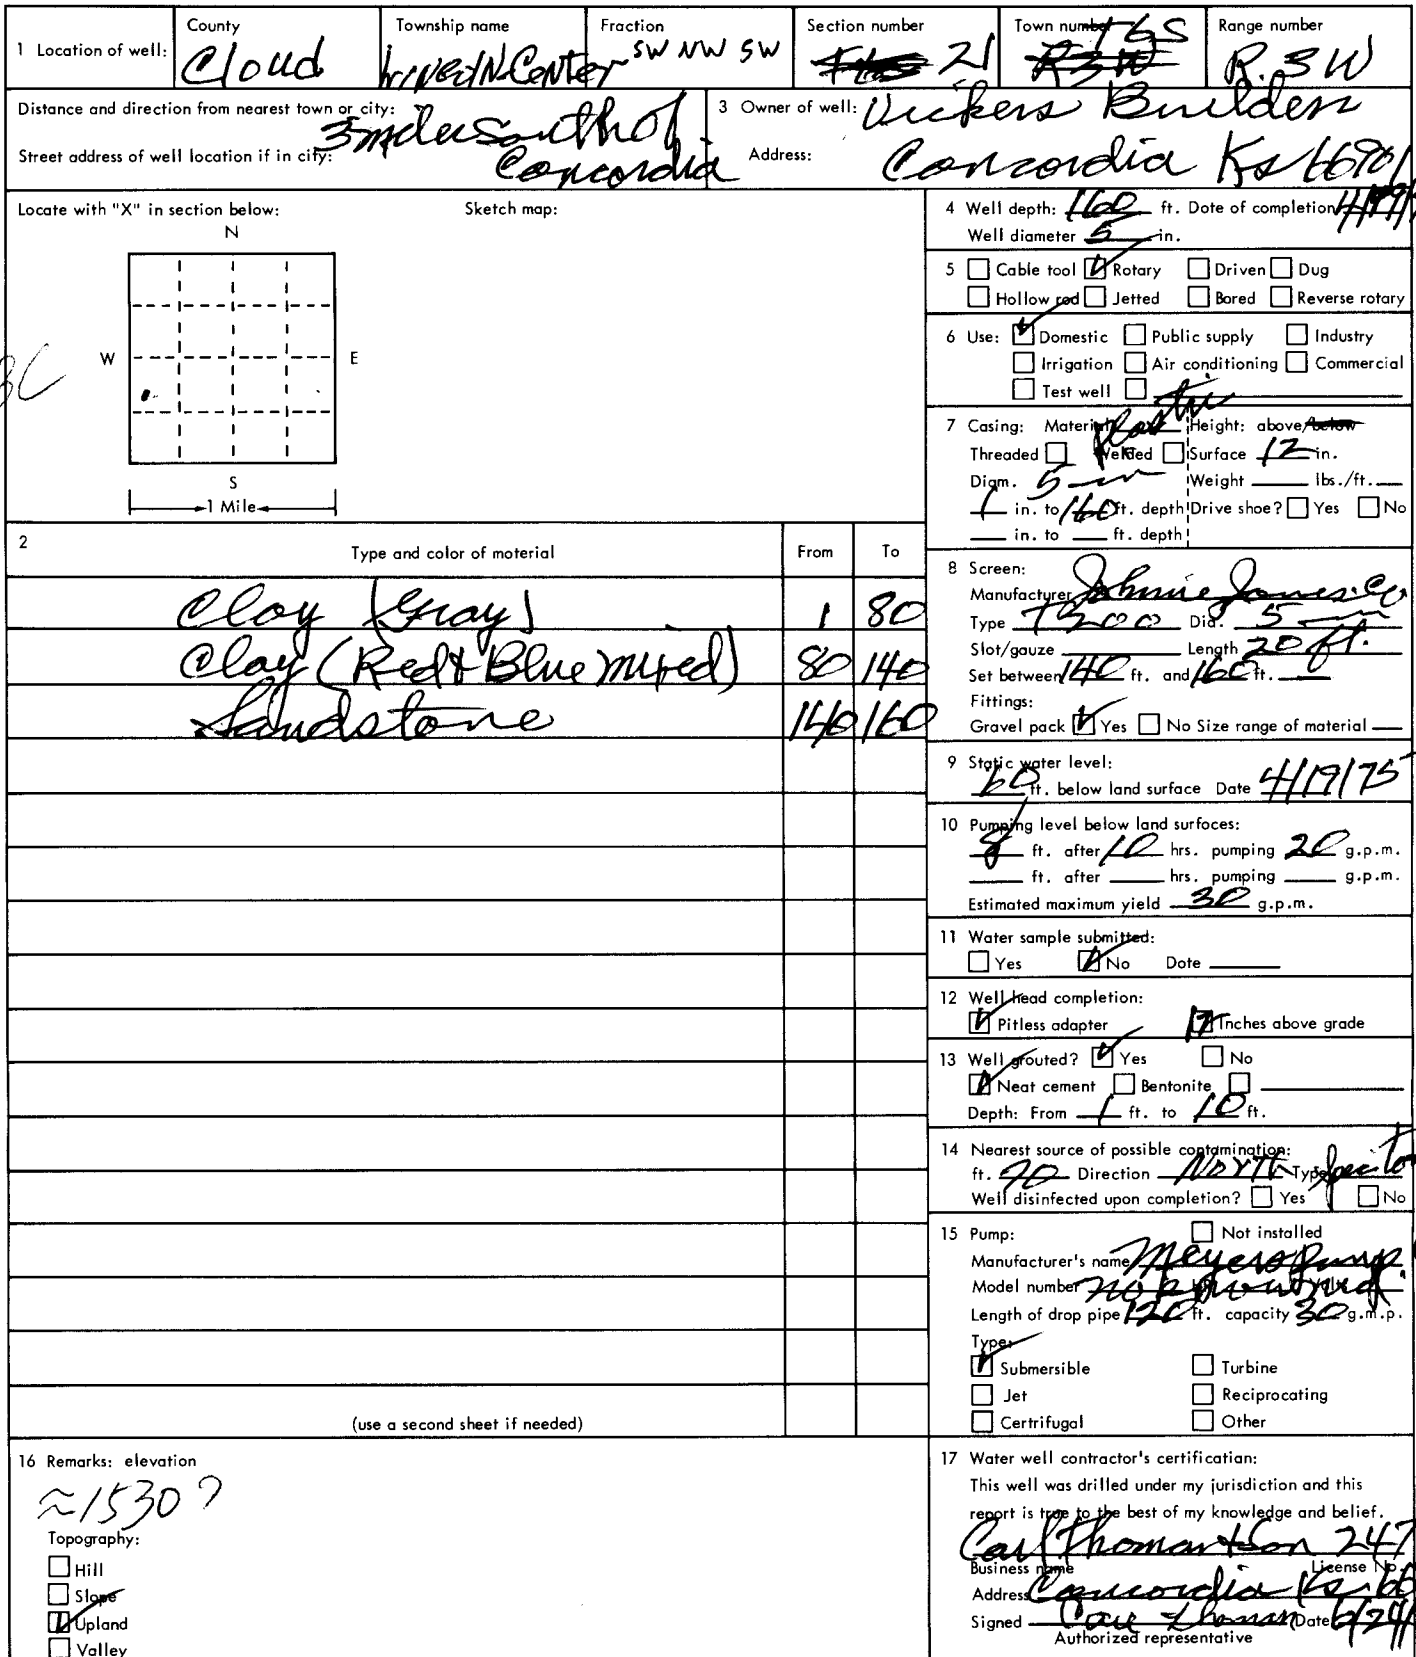 1 Location of well: County Cloud Township name Center Fraction SW NW SW Section number 21 Town number T6S Range number R. 3W
Distance and direction from nearest town or city: 3 miles South of
Street address of well location if in city: Concordia
3 Owner of well: Vickers Builders
Address: Concordia Ks 66901
Locate with "X" in section below: Sketch map:
N
W E
S
1 Mile
4 Well depth: 160 ft. Date of completion
Well diameter 5 in.
5 Cable tool Rotary Driven Dug
Hollow rod Jetted Bored Reverse rotary
6 Use: Domestic Public supply Industry
Irrigation Air conditioning Commercial
Test well
7 Casing: Material Plastic Height: above/below
Threaded Welded Surface 12 in.
Diam. 5 in Weight lbs./ft.
1 in. to 160 ft. depth Drive shoe? Yes No
in. to ft. depth
2 Type and color of material From To
Clay (Gray) 1 80
Clay (Red & Blue mixed) 80 140
Sandstone 140 160
(use a second sheet if needed)
8 Screen:
Manufacturer Johnnie Jones Co
Type T200 Dia. 5 in
Slot/gauze Length 20 ft.
Set between 140 ft. and 160 ft.
Fittings:
Gravel pack Yes No Size range of material
9 Static water level:
60 ft. below land surface Date 4/19/75
10 Pumping level below land surfoces:
ft. after 10 hrs. pumping 20 g.p.m.
ft. after hrs. pumping g.p.m.
Estimated maximum yield 30 g.p.m.
11 Water sample submitted:
Yes No Date
12 Well head completion:
Pitless adapter 12 Inches above grade
13 Well grouted? Yes No
Neat cement Bentonite
Depth: From 1 ft. to 10 ft.
14 Nearest source of possible contamination:
ft. 90 Direction North Type
Well disinfected upon completion? Yes No
15 Pump: Not installed
Manufacturer's name Meyers Pump
Model number
Length of drop pipe 120 ft. capacity 30 g.m.p.
Type:
Submersible Turbine
Jet Reciprocating
Certrifugal Other
16 Remarks: elevation
≈1530?
Topography:
Hill
Slope
Upland
Valley
17 Water well contractor's certification:
This well was drilled under my jurisdiction and this
report is true to the best of my knowledge and belief.
Carl Thoman & Son 247
Business name License No.
Address Concordia Ks. 66
Signed Carl Thoman Date 6/24/
Authorized representative